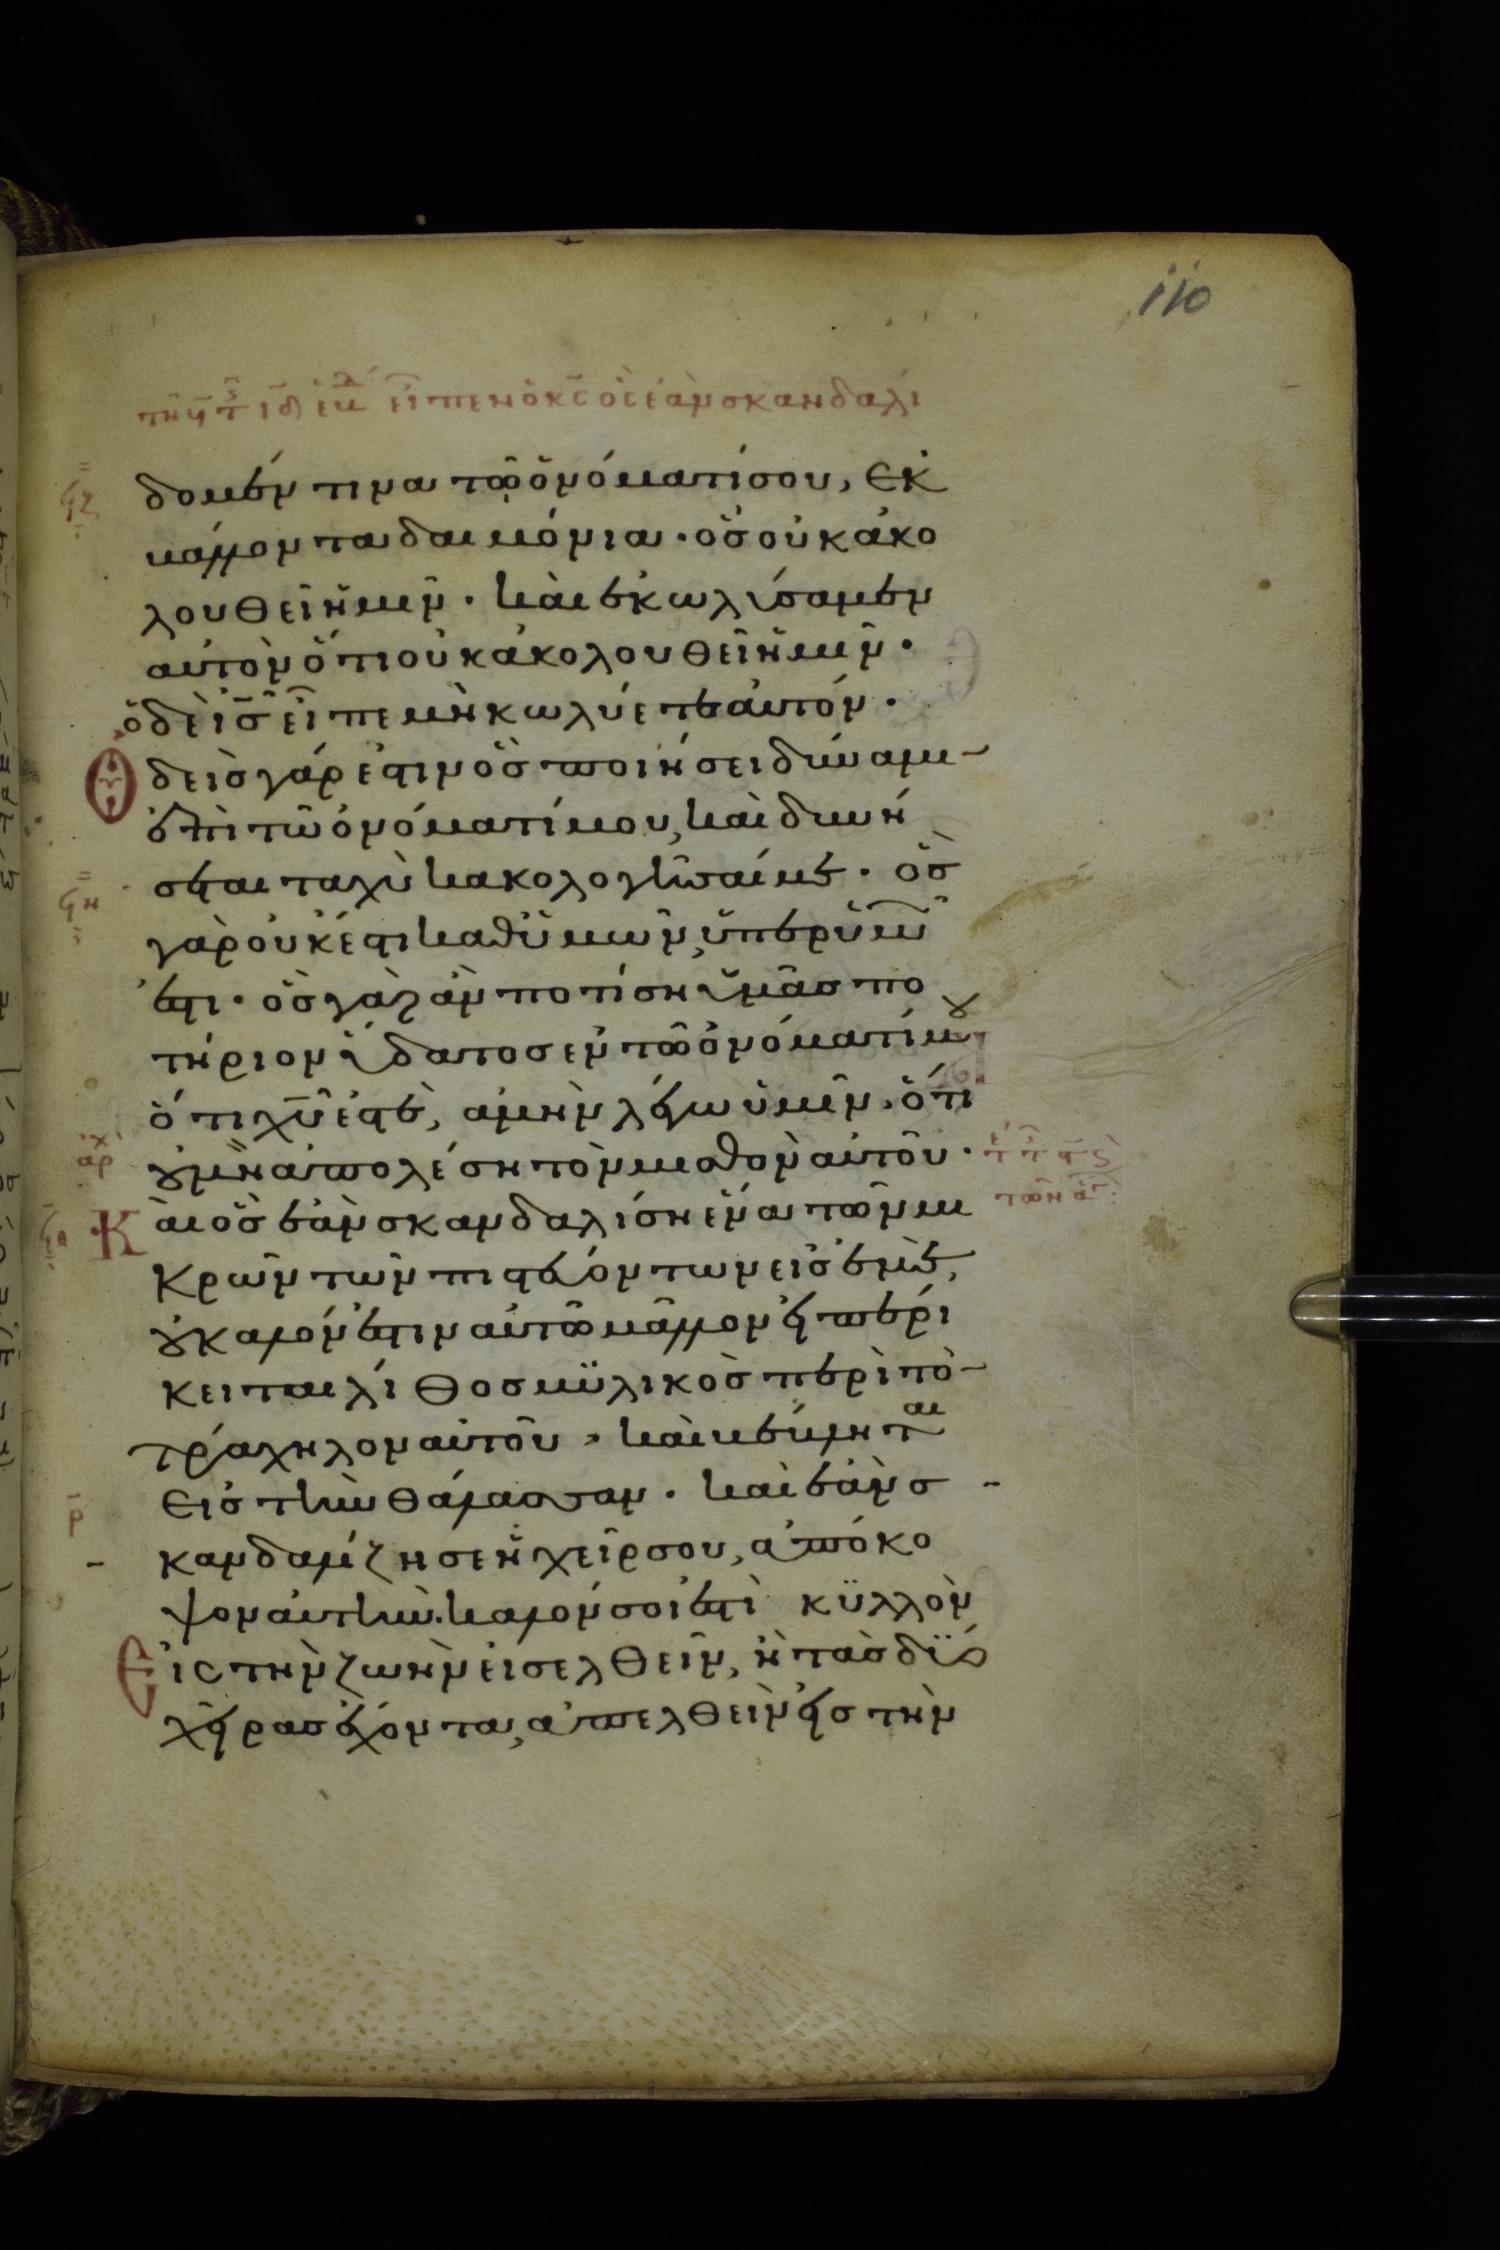 110
εἶπεν ὁ κ̄ς ὃς ἐὰν σκανδαλί
ϟζ
δομέν τινα τῶ ὀνόματί σου, ἐκ
βάλλοντα δαιμόνια · ὃς οὐκ ἀκο
λουθεῖ ἡμῖν · καὶ ἐκωλύσαμεν
αὐτὸν ὅτι οὐκ ἀκολουθεῖ ἡμῖν ·
ὁ δὲ ι̅σ̅ εἶπε μὴ κωλύετε αὐτόν ·
Οὐδεὶς γάρ ἐστιν ὃς ποιήσει δύναμι
ἐπὶ τῶ ὀνόματί μου, καὶ δυνή
ϟη
σεται ταχὺ κακολογῆσαί με · ὃς
γὰρ οὐκ ἔστι καθ ὑμῶν, ὑπὲρ ὑμῶν
ἐστι · ὃς γὰρ ἂν ποτίση ὑμᾶς πο
τήριον ὕδατος ἐν τῶ ὀνόματί μου
ὅτι χ̅υ̅ ἐστὲ, ἀμὴν λέγω ὑμῖν, ὅτι
ἀρχ
οὐ μὴ ἀπολέση τὸν μισθὸν αὐτοῦ ·
ϟθ
Καὶ ὃς ἐὰν σκανδαλίση ἕνα τῶν μι
κρῶν τῶν πιστευόντων εἰς ἐμὲ,
οὐ καλόν ἐστιν αὐτῶ μᾶλλον εἰ περί
κειται λίθος μϋλικὸς περὶ τὸ
τράχηλον αὐτοῦ, καὶ βέβληται
εἰς τὴν θάλασσαν · καὶ ἐὰν σ
ρ
κανδαλίζη σε ἡ χεῖρ σου, ἀπόκο
ψον αὐτὴν. καλόν σοι ἐστὶ κϋλλὸν
Εἰς τὴν ζωὴν εἰσελθεῖν, ἢ τὰς δϋο
χεῖρας ἔχοντα, ἀπελθεῖν εἰς τὴν